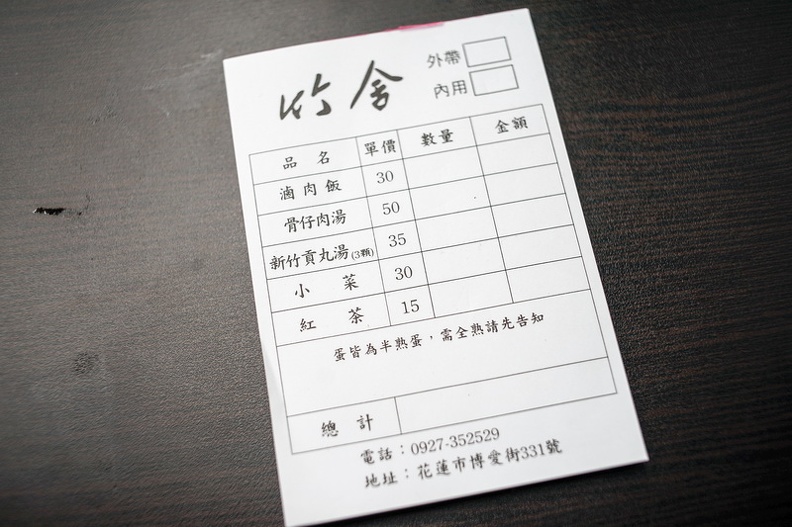 竹舍
外帶
內用
品名 單價 數量 金額
滷肉飯 30
骨仔肉湯 50
新竹貢丸湯(3顆) 35
小菜 30
紅茶 15
蛋皆為半熟蛋，需全熟請先告知
總計
電話：0927-352529
地址：花蓮市博愛街331號